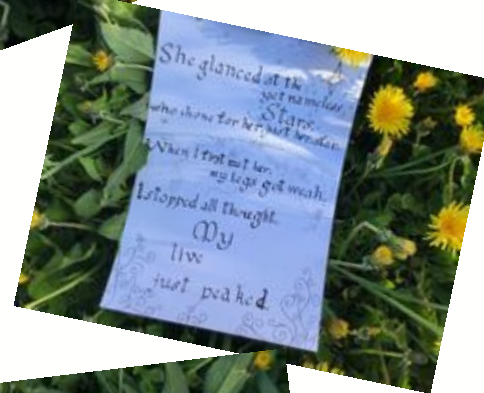 She glanced at the
yet nameless
Stars,
who shone for her, just her star.
When I first met her,
my legs got weak,
I stopped all thought.
My
live
just peaked.